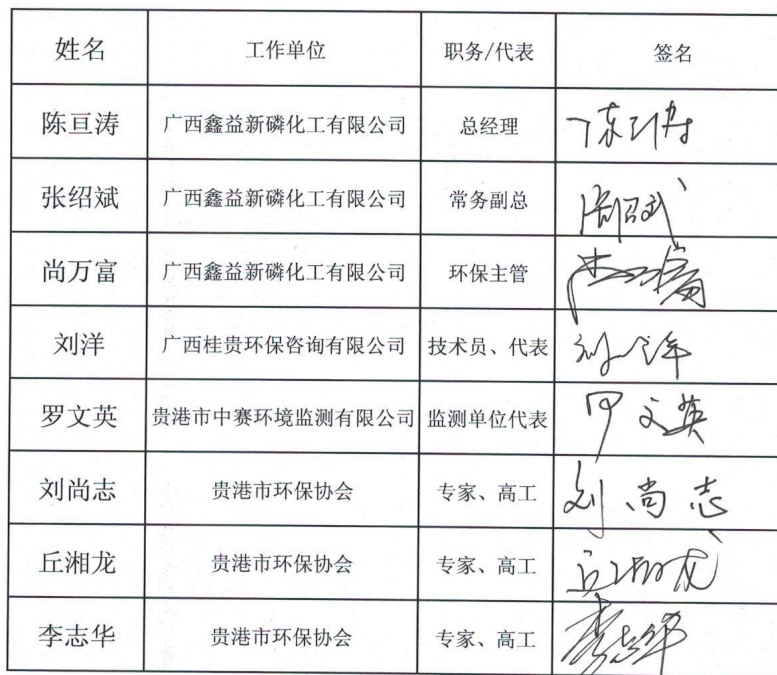 姓名 工作单位 职务/代表 签名
陈亘涛 广西鑫益新磷化工有限公司 总经理 陈亘涛
张绍斌 广西鑫益新磷化工有限公司 常务副总 张绍斌
尚万富 广西鑫益新磷化工有限公司 环保主管 尚万富
刘洋 广西桂贵环保咨询有限公司 技术员、代表 刘洋
罗文英 贵港市中赛环境监测有限公司 监测单位代表 罗文英
刘尚志 贵港市环保协会 专家、高工 刘尚志
丘湘龙 贵港市环保协会 专家、高工 丘湘龙
李志华 贵港市环保协会 专家、高工 李志华